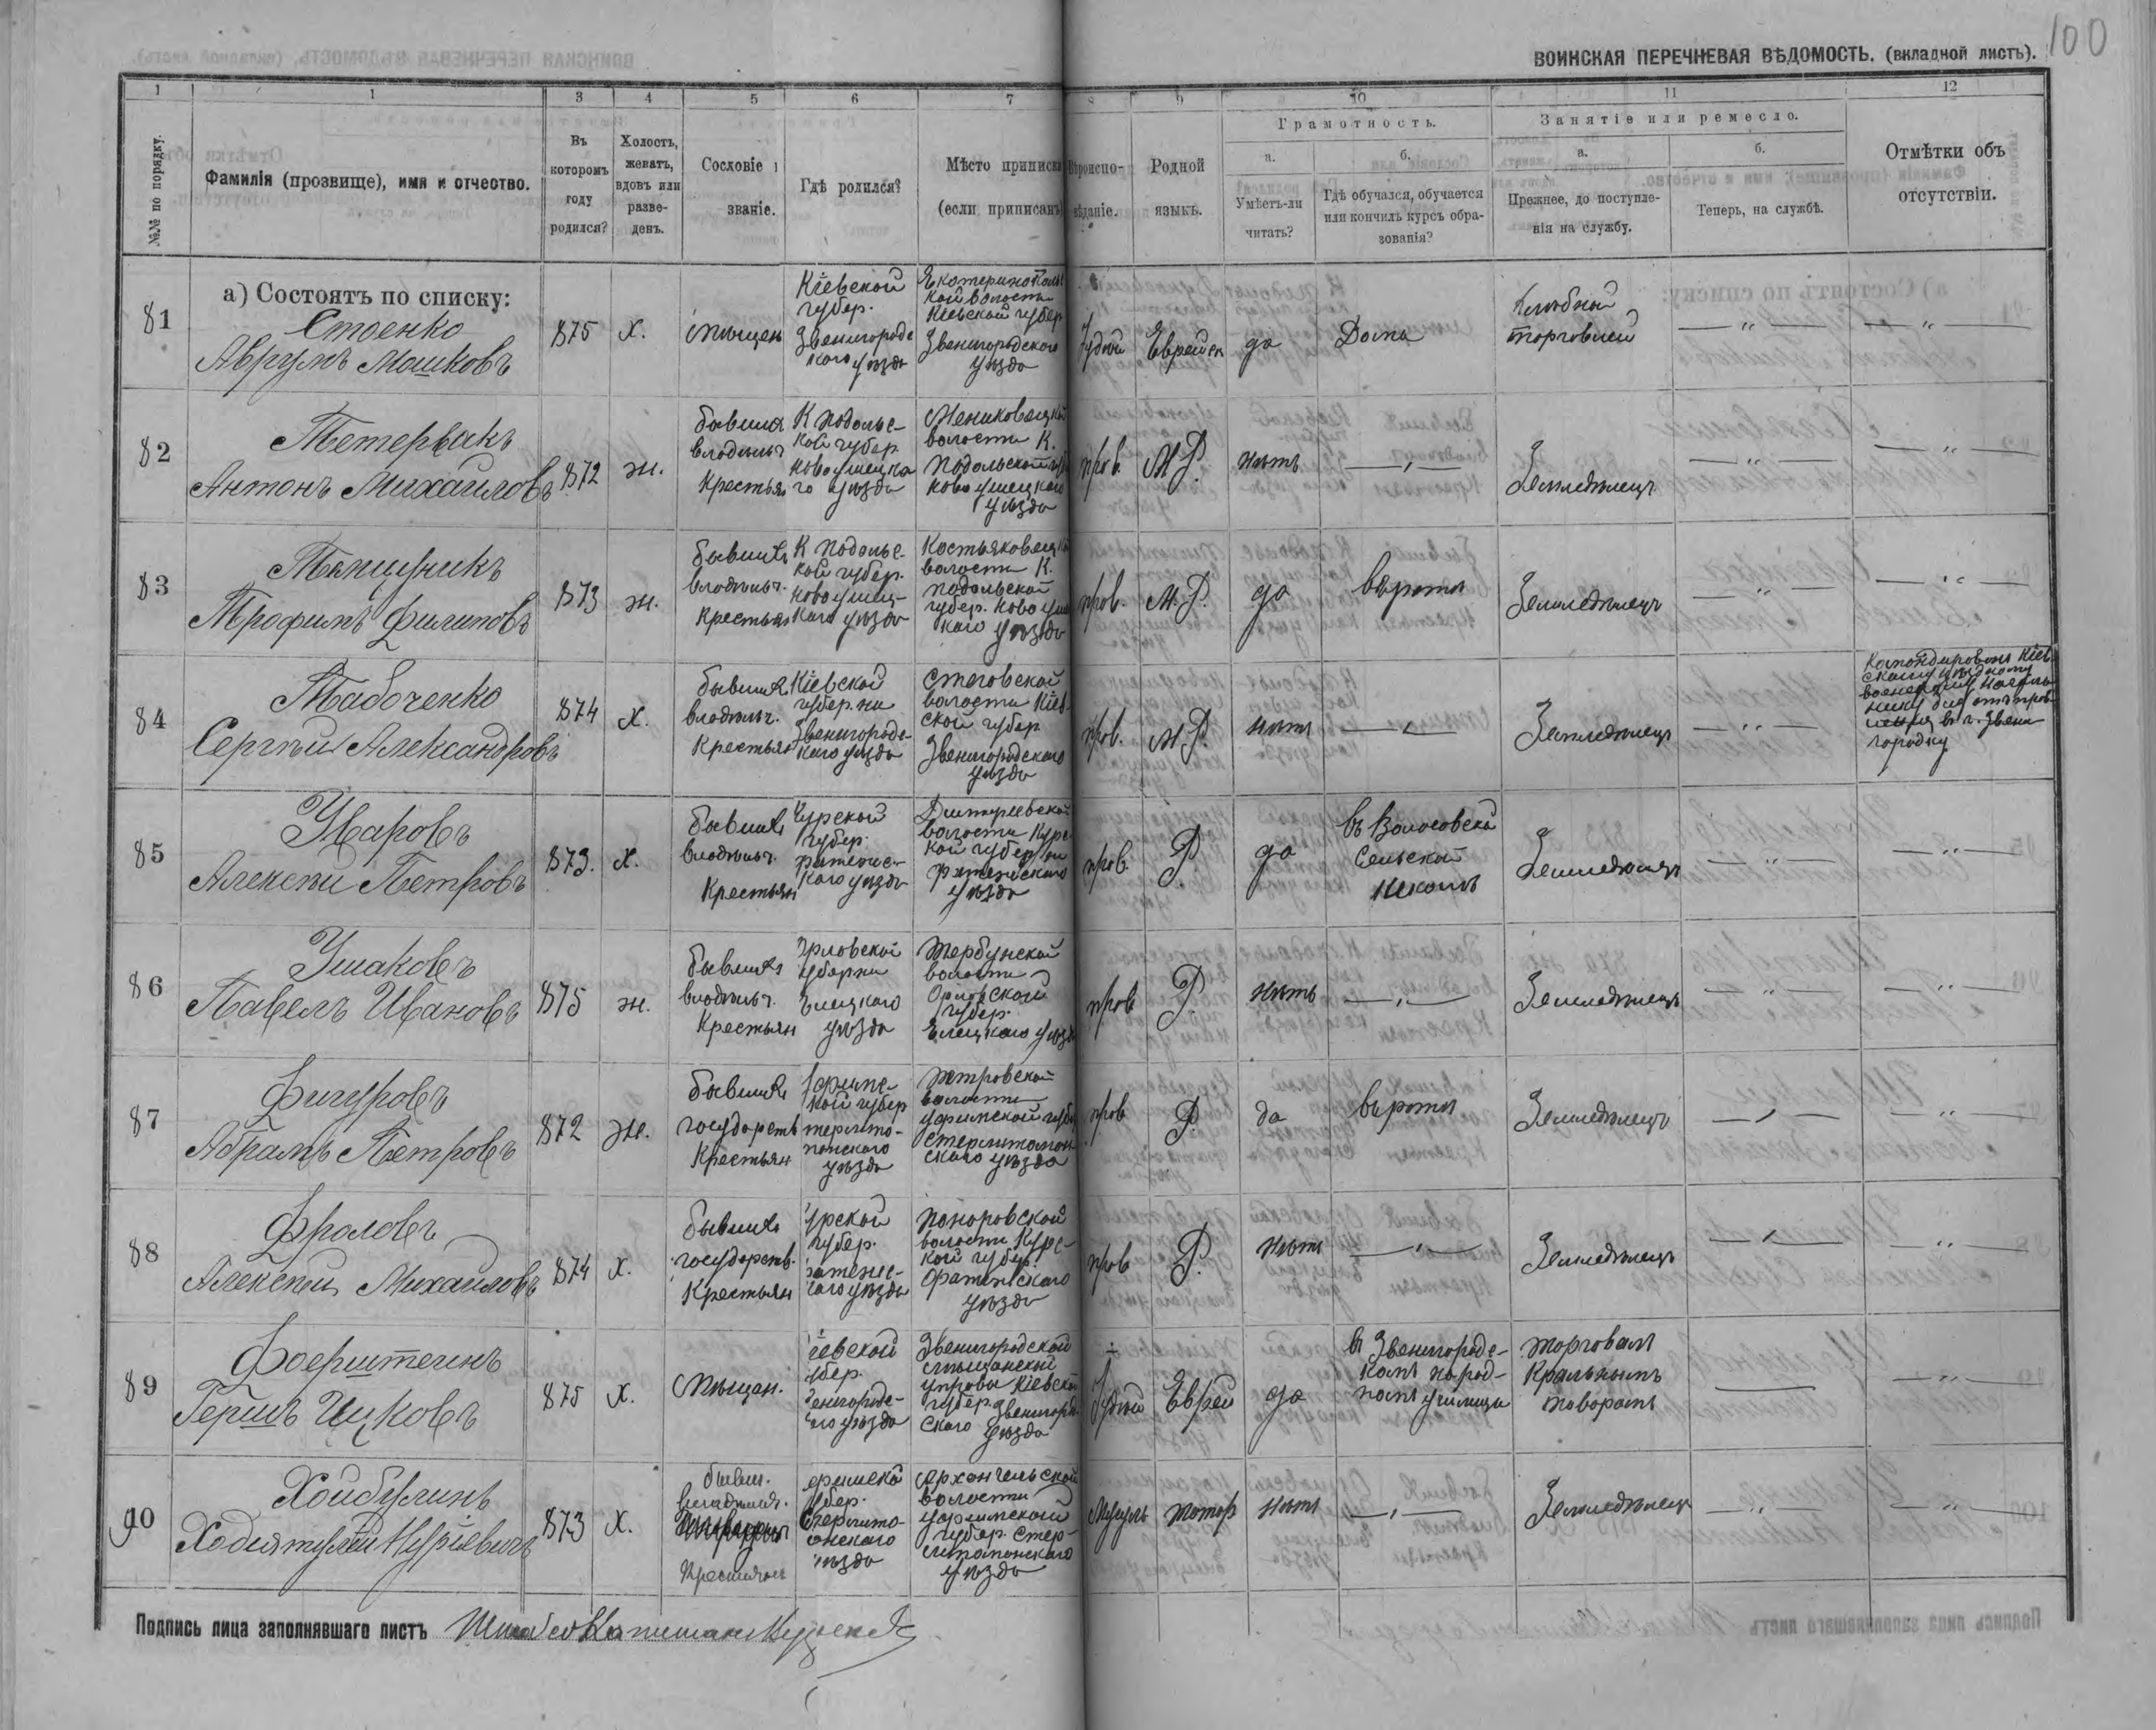 100
ВОИНСКАЯ ПЕРЕЧНЕВАЯ ВѢДОМОСТЬ. (вкладной листъ).
1 1 3 4 5 6 7 8 9 10 11 12
№№ по порядку.
Фамилія (прозвище), имя и отчество.
Въ которомъ году родился?
Холостъ, женатъ, вдовъ или разведенъ.
Сословіе и званіе.
Гдѣ родился?
Мѣсто приписки (если приписанъ)
Вѣроиспо- вѣданіе.
Родной языкъ.
Грамотность.
а. Умѣетъ-ли читать?
б. Гдѣ обучался, обучается или кончилъ курсъ обра- зованія?
Занятіе или ремесло.
а. Прежнее, до поступле- нія на службу.
б. Теперь, на службѣ.
Отмѣтки объ отсутствіи.
а) Состоятъ по списку:
81
Стоенко
Аврумъ Мошковъ
875
х.
Мѣщен
Кіевской
губер.
Звенигородс
каго уѣзда
кой волости
Кіевской губер
Звенигородского
уѣзда
Іудей
Еврейск
да
Дома
Хлѣбной
торговлей
82
Антонъ Михаиловъ
872
ж.
бывшихъ
владѣльч
Крестьян
К Подольс-
кой губер.
Новоушицка
го уѣзда
волости К.
Подольской губ
Новоушицкаго
уѣзда
прав.
М.Р.
нѣтъ
Земледѣлецъ
83
Трофимъ Филиповъ
873
ж.
бывшихъ
владѣльч.
Крестьян
К Подольс-
кой губер.
Новоушиц-
каго уѣзда
волости К.
Подольской
губер. Новоуши
каго уѣзда
прав.
М.Р.
да
въ ротѣ
Земледѣлецъ
84
Табоченко
Сергѣй Александровъ
874
х.
бывшихъ
владѣльч.
Крестьян
Кіевской
губер.ни
Звенигородс-
каго уѣзда
волости Кіев-
ской губер
Звенигородскаго
уѣзда
прав.
М.Р.
нѣтъ
Земледѣлецъ
Командированъ Кіев-
скому уѣздному
городку
85
Уваровъ
Алексѣй Петровъ
873.
х.
бывшихъ
владѣльч.
Крестьян
Курской
губер.
Фатежс-
каго уѣзда
волости Курс-
кой губерніи
Фатежскаго
уѣзда
прав.
Р.
да
Сельской
школѣ
Земледѣлецъ
86
Ушаковъ
Павелъ Ивановъ
875
ж.
бывшихъ
владѣльч.
Крестьян
Орловской
губерніи
Елецкаго
уѣзда
Тербунской
волости
Орловской
губер.
Елецкаго уѣзда
прав
Р.
нѣтъ
Земледѣлецъ
87
Фигуровъ
Абрамъ Петровъ
872
ж.
бывшихъ
государств
Крестьян
Уфимс-
кой губер
уѣзда
Петровской
волости
Уфимской губер
Стерлитамак
скаго уѣзда
прав
Р.
да
въ ротѣ
Земледѣлецъ
88
Фроловъ
Алексѣй Михаиловъ
874
х.
бывшихъ
государств.
Крестьян
Курской
губер.
Фатежс-
каго уѣзда
волости Курс-
кой губер.
Фатежскаго
уѣзда
прав
Р.
нѣтъ
Земледѣлецъ
89
Фоерштеинъ
Гершъ Ицковъ
875
х.
Мѣщан.
Кіевской
губер.
Звенигородс-
каго уѣзда
Звенигородской
мѣщанской
управы Кіевской
губер. Звенигород
скаго уѣзда
Іудей
Еврей
да
в Звенигородс-
комъ народ-
номъ училищѣ
торговалъ
товаромъ
90
Хойбулинъ
873
х.
бывш.
владѣльч.
Крестьянъ
Уфимско
губер.
уѣзда
Архангельской
волости
Уфимской
губер. Стер-
уѣзда
Мусул
татар
нѣтъ
Земледѣлецъ
Подпись лица заполнявшаго листъ Штабсъ Капитанъ